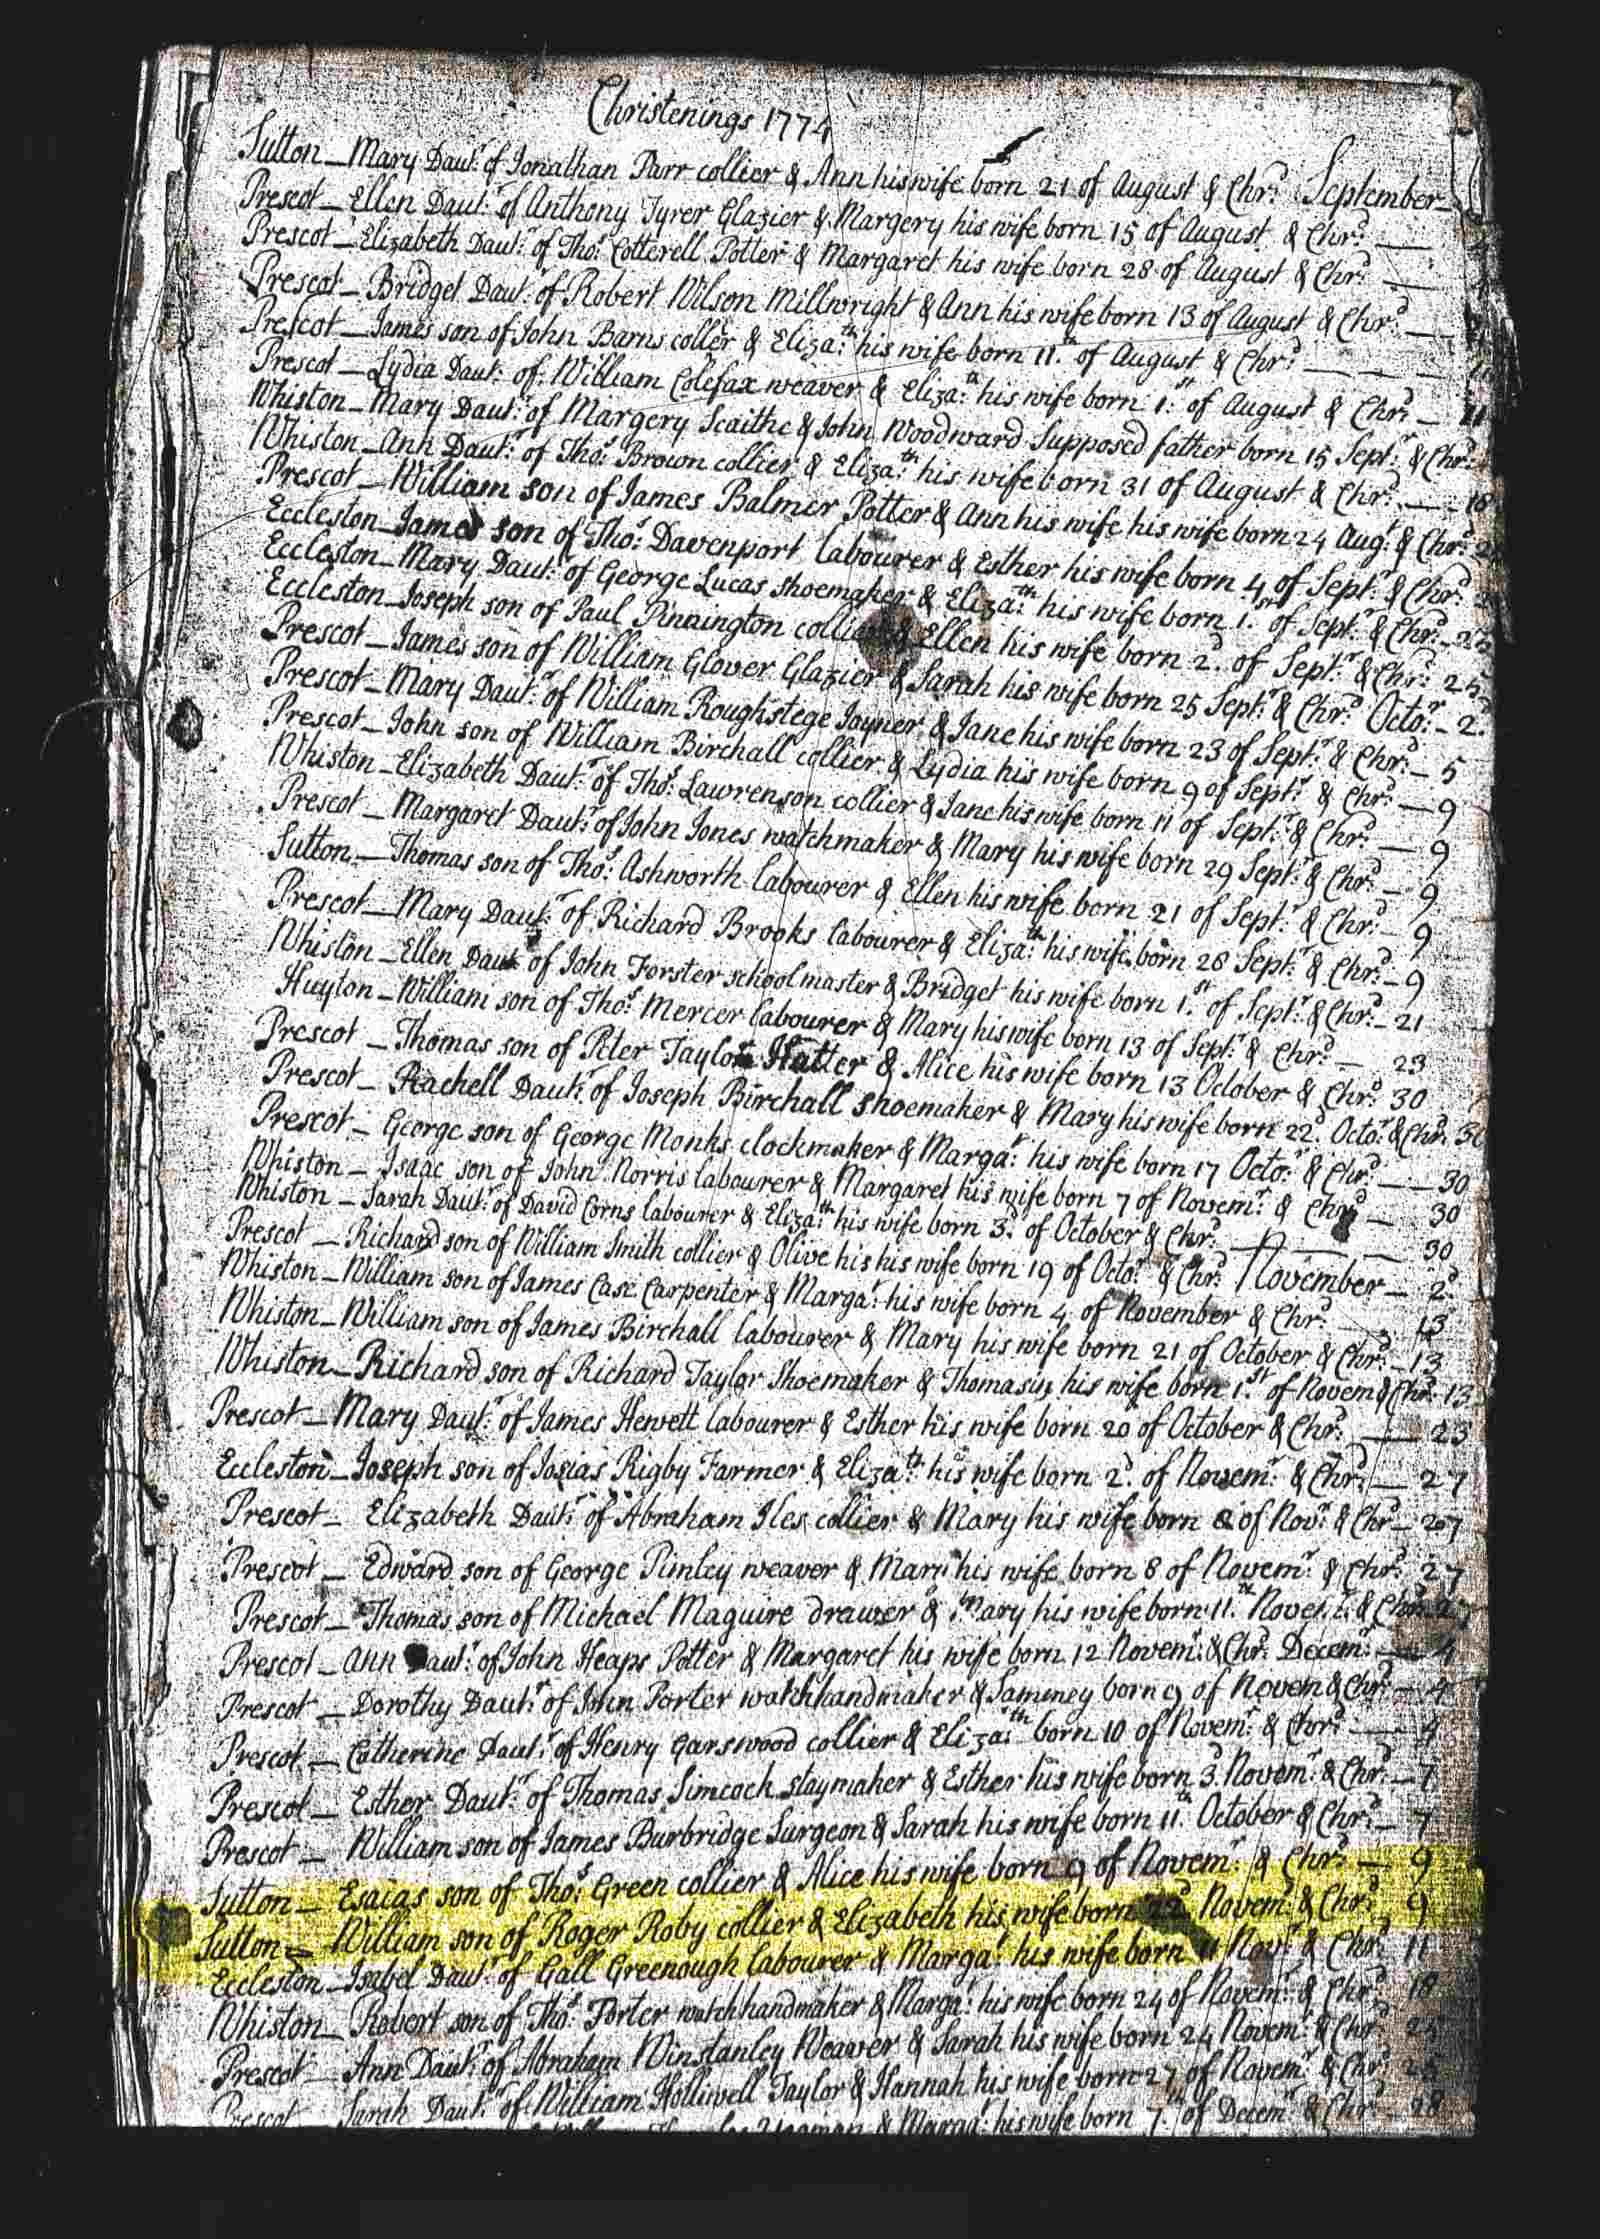 Christenings 1774
Sutton - Mary Daut.r of Jonathan Parr collier & Ann his wife born 21 of August & Chr.d September
Prescot - Ellen Daut.r of Anthony Tyrer Glazier & Margery his wife born 15 of August & Chr.d
Prescot - Elizabeth Daut.r of Tho.s Cotterell Potter & Margaret his wife born 28 of August & Chr.d
Prescot - Bridget Daut.r of Robert Wilson Millwright & Ann his wife born 13 of August & Chr.d
Prescot - James son of John Barns coller & Eliza.th his wife born 11.th of August & Chr.d
Prescot - Lydia Daut.r of William Colefax weaver & Eliza.th his wife born 1.st of August & Chr.d - 11
Whiston - Mary Daut.r of Margery Scaithe & John Woodward Supposed father born 15 Sept.r & Chr.d
Whiston - Ann Daut.r of Tho.s Brown collier & Eliza.th his wife born 31 of August & Chr.d - 18
Prescot - William son of James Balmer Potter & Ann his wife his wife born 24 Aug.t & Chr.d
Eccleston - James son of Tho.s Davenport labourer & Esther his wife born 4 of Sept.r & Chr.d
Eccleston - Mary Daut.r of George Lucas shoemaker & Eliza.th his wife born 1.st of Sept.r & Chr.d
Eccleston - Joseph son of Paul Pinnington collier & Ellen his wife born 2.d of Sept.r & Chr.d 25
Prescot - James son of William Glover Glazier & Sarah his wife born 25 Sept.r & Chr.d Octo.r - 2.d
Prescot - Mary Daut.r of William Roughstege Joyner & Jane his wife born 23 of Sept.r & Chr.d - 5
Prescot - John son of William Birchall collier & Lydia his wife born 9 of Sept.r & Chr.d - 9
Whiston - Elizabeth Daut.r of Tho.s Lawrenson collier & Jane his wife born 11 of Sept.r & Chr.d - 9
Prescot - Margaret Daut.r of John Jones watchmaker & Mary his wife born 29 Sept.r & Chr.d - 9
Sutton - Thomas son of Tho.s Ashworth labourer & Ellen his wife born 21 of Sept.r & Chr.d - 9
Prescot - Mary Daut.r of Richard Brooks labourer & Eliza.th his wife born 28 Sept.r & Chr.d - 9
Whiston - Ellen Daut of John Forster schoolmaster & Bridget his wife born 1.st of Sept.r & Chr.d - 21
Huyton - William son of Tho.s Mercer labourer & Mary his wife born 13 of Sept.r & Chr.d - 23
Prescot - Thomas son of Peter Taylor Hatter & Alice his wife born 13 October & Chr.d 30
Prescot - Rachell Daut.r of Joseph Birchall shoemaker & Mary his wife born 22.d Octo.r & Chr.d 30
Prescot - George son of George Monks clockmaker & Marga.t his wife born 17 Octo.r & Chr.d - 30
Whiston - Isaac son of John Norris labourer & Margaret his wife born 7 of Novem.r & Chr.d - 30
Whiston - Sarah Daut.r of David Corns labourer & Eliza.th his wife born 3.d of October & Chr.d - 30
Prescot - Richard son of William Smith collier & Olive his his wife born 19 of Octo.r & Chr.d November - 2.d
Whiston - William son of James Case Carpenter & Marga.t his wife born 4 of November & Chr.d - 13
Whiston - William son of James Birchall labourer & Mary his wife born 21 of October & Chr.d - 13
Whiston - Richard son of Richard Taylor Shoemaker & Thomasin his wife born 1.st of Novem & Chr.d 13
Prescot - Mary Daut.r of James Hewett labourer & Esther his wife born 20 of October & Chr.d - 23
Eccleston - Joseph son of Josias Rigby Farmer & Eliza.th his wife born 2.d of Novem.r & Chr.d - 27
Prescot - Elizabeth Daut.r of Abraham Iles collier & Mary his wife born of Nov.r & Chr.d - 27
Prescot - Edward son of George Pimley weaver & Mary his wife born 8 of Novem.r & Chr.d 27
Prescot - Thomas son of Michael Maguire drawer & Mary his wife born 11.th Novem.r & Chr.d 27
Prescot - Ann Daut.r of John Heaps Potter & Margaret his wife born 12 Novem.r & Chr.d Decem.r - 4
Prescot - Dorothy Daut.r of John Porter watchhandmaker & born 9 of Novem & Chr.d - 4
Prescot - Catherine Daut.r of Henry Garswood collier & Eliza.th born 10 of Novem.r & Chr.d - 4
Prescot - Esther Daut.r of Thomas Simcock staymaker & Esther his wife born 3.d Novem.r & Chr.d - 7
Prescot - William son of James Burbridge Surgeon & Sarah his wife born 11.th October & Chr.d - 7
Sutton - Esaias son of Tho.s Green collier & Alice his wife born 9 of Novem.r & Chr.d - 9
Sutton - William son of Roger Roby collier & Elizabeth his wife born 22.d Novem.r & Chr.d 9
Eccleston - Isabel Daut.r of Gall Greenough labourer & Marga.t his wife born Nov.r & Chr.d 11
Whiston - Robert son of Tho.s Porter watchhandmaker & Marga.t his wife born 24 of Novem.r & Chr.d 18
Prescot - Ann Daut.r of Abraham Winstanley Weaver & Sarah his wife born 24 Novem.r & Chr.d 25
Prescot - Sarah Daut.r of William Holliwell Taylor & Hannah his wife born 27 of Novem.r & Chr.d 25
Yeoman & Marga.t his wife born 7.th of Decem.r & Chr.d - 28